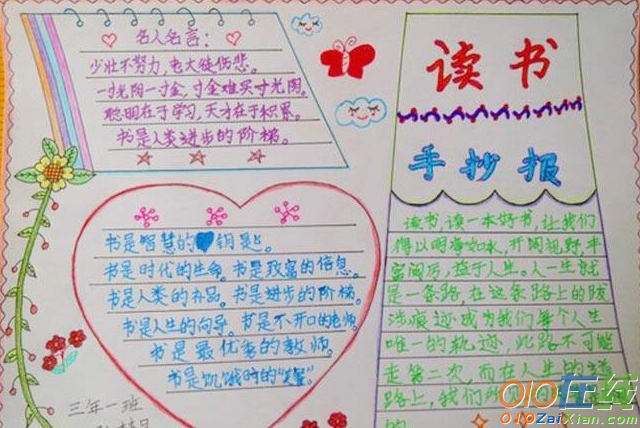 名人名言：
少壮不努力，老大徒伤悲。
一寸光阴一寸金，寸金难买寸光阴。
聪明在于学习，天才在于积累。
书是人类进步的阶梯。
书是智慧的钥匙。
书是时代的生命。书是致富的信息。
书是人类的补品。书是进步的阶梯。
书是人生的向导。书是不开口的老师。
书是最优秀的教师。
书是饥饿时的
三年一班
读书
手抄报
读书，读一本好书，让我们
得以明净如水，开阔视野，丰
富阅历，益于人生。人一生就
是一条路，在这条路上的跋
涉痕迹成为我们每个人生
唯一的轨迹，此路不可能
走第二次，而在人生的道
路上，我们所见的
010在线
010ZaiXian.com